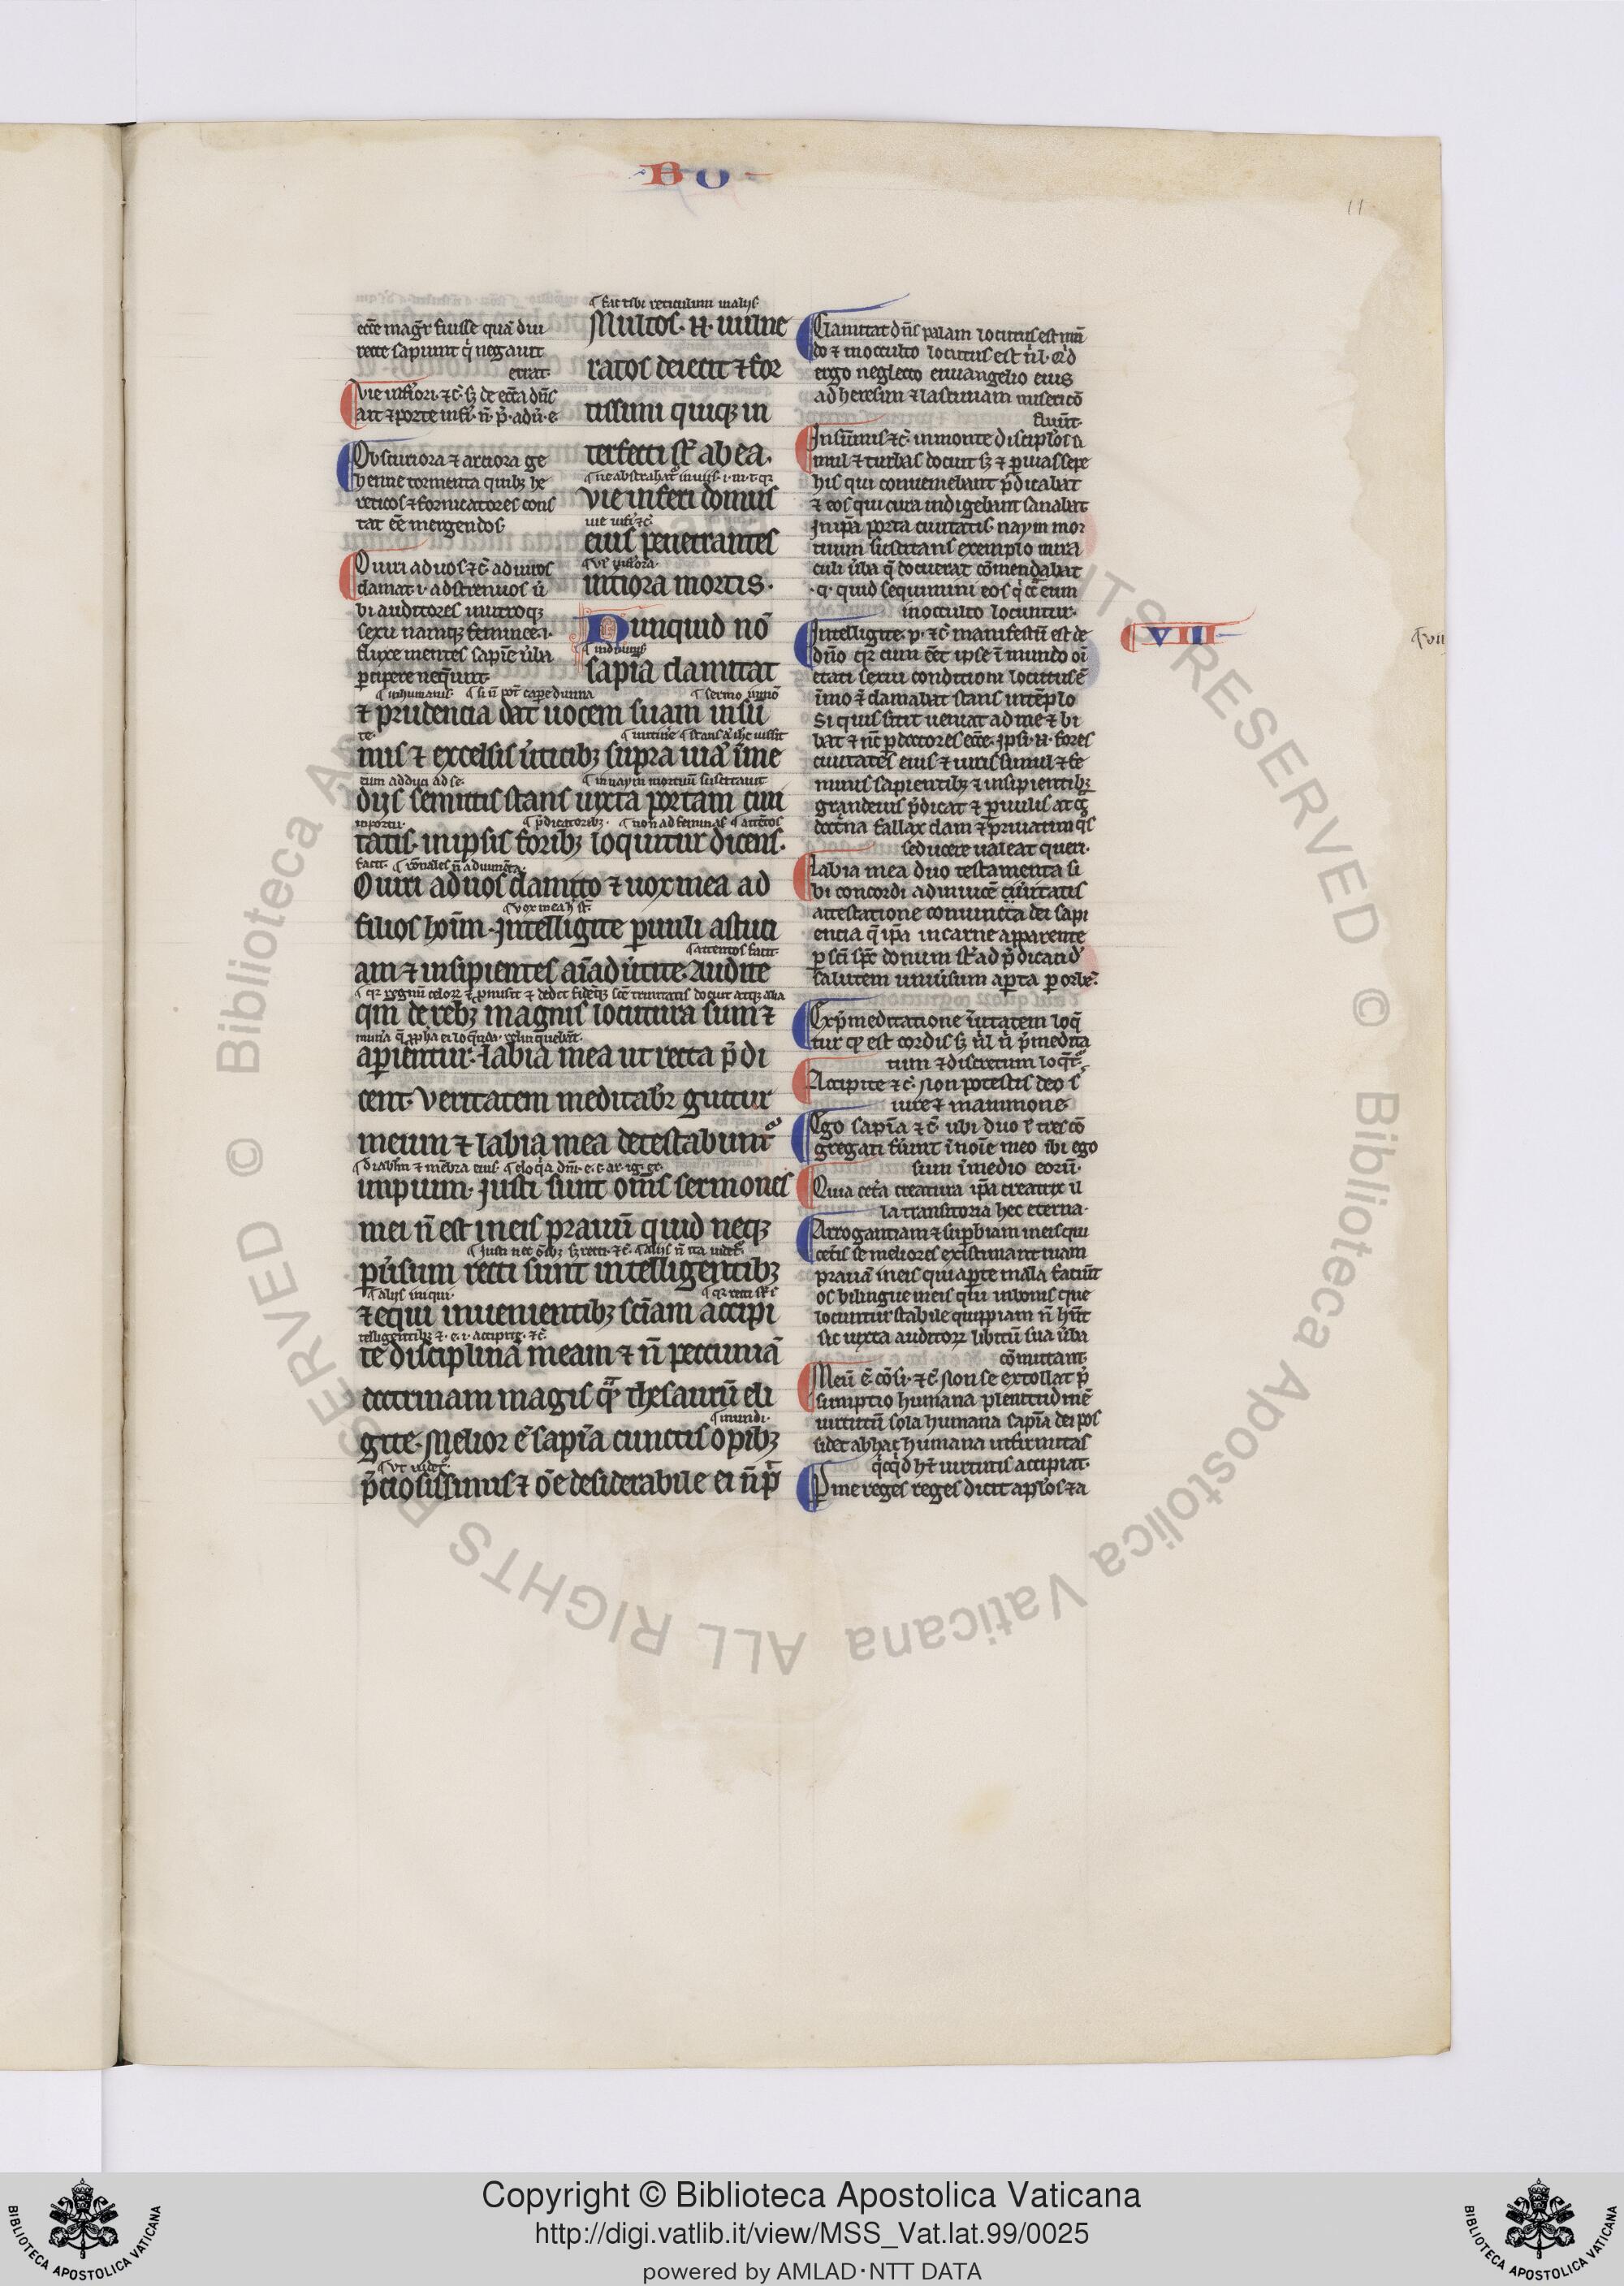 BO
11
ecc̄e mag̃r fuisse quā diu
recte sapiunt q̇ negauit
errat·
Vie inf̃iori· ⁊c̃· sꝫ de ecc̄a dn̄s
ait ⁊ porte inf̃i· n̄· p̃· adũ· e
Obscuriora ⁊ artiora ge
henne tormenta quibꝫ he
reticos ⁊ fornicatores cons
tat eē mergendos·
O uiri ad uos ⁊c̃· ad uiros
clamat· i· ad strenuos ũ
bi auditores in utroqꝫ
sexu namqꝫ feminee· i·
fluxe mentes sapīe ũba
ꝑcipere neq̄unt·
¶ fac tibi reticulum in alijs·
Multos· N̄· uulne
ratos deiecit ⁊ for
tissimi quiqꝫ in
terfecti sī ab ea·
Vie inferi domus
uie inf̃i ⁊c̃
eius penetrantes
¶ ul' inf̃iora·
intiora mortis·
Nunquid nō
sapīa clamitat
⁊ prudencia dat uocem suam in sū
mis ⁊ excelsis ũticibꝫ supra uiā ī me
cum adduci ad se· ¶ in naym mortuū suscitauit
dijs semitis stans iuxta portam ciui
¶ p̃dicatoribꝫ· ¶ non ad feminas ¶ attētos
tatis· in ipsis foribꝫ loquitur dicens·
facit·
O uiri ad uos clamito ⁊ uox mea ad
¶ uox mea ħ sc̃·
filios hoīm· Intelligite ꝑuuli astuci
¶ attentos facit·
am ⁊ insipientes aīaduertite· Audite
qm̄ de rebꝫ magnis locutura sum ⁊
aꝑientur· labia mea ut recta p̃di
cent· Veritatem meditabr̃ guttur
meum ⁊ labia mea detestabunt̃
impium· Iusti sunt om̄s sermones
mei n̄ est in eis prauū quid neqꝫ
ꝑũsum recti sunt intelligentibꝫ
¶ alijs iniqui·
⁊ equi inuenientibꝫ sciam accipi
telligentibꝫ ⁊· e· i· accipite· ⁊c̃·
te disciplinā meam ⁊ n̄ peccuniā
doctrinam magis qᷓ thesaurū eli
¶ mundi·
gite· Melior ē sapīa cunctis opibꝫ
p̃ciosissimis ⁊ ōe desiderabile ei n̄ p̃
Clamitat dn̄s palam locutus est mū
do ⁊ in occulto locutus est n̄l· q̇d
ergo neglecto euuangelio eius
ad heresim ⁊ lasciuiam uisericō
fluūt·
In sūmis ⁊c̃· in monte discipl'os si
mul ⁊ turbas docuit sꝫ ⁊ ꝑ uias sepe
his qui conueniebant p̃dicabat
⁊ eos qui cura indigebant sanabat
In ip̄a porta ciuitatis naym mor
tuum suscitans exemplo mira
culi ũba q̄ docuerat cōmendabat
·q· quid sequimini eos q̇ cᷓ eum
in occulto locuntur·
Intelligite· p· ⁊c̃· manifestū est de
dn̄o qꝛ cum eēt ipse ī mundo oī
etati sexui conditioni locutus ē
īmo ⁊ clamabat stans in tēplo
Si quis sitit ueniat ad me ⁊ bi
bat ⁊ nc̄ ꝑ doctores ecc̄e· Ipsi· N̄· fores
ciuitates eius ⁊ uiris simul ⁊ fe
minis sapientibꝫ ⁊ insipientibꝫ
grandeuis p̃dicat ⁊ ꝑuulis at qꝫ
doctⁱna fallax clam ⁊ priuatim q̇s
seducere ualeat querit·
Labia mea duo testamenta si
bi concordi ad inuicē ciuitatis
attestatione coniuncta dei sapi
encia q̄ ip̄a in carne apparente
ꝑ sc̄i sp̄c donum sī ad p̃dicandā
salutem uniũsum aꝑta ꝑ orbē·
Ex p̃meditatione ũitatem loq̇
tur qꝫ est cordis sꝫ n̄l n̄ p̃medita
tum ⁊ discretum loq̄t·
Accipite ⁊c̃· Non potestis deo s̃
uire ⁊ mammone·
Ego sapīa ⁊c̃· ubi duo ł tres cō
gregati fūint ī noīe meo ibi ego
sum ī medio eorū·
Quia cetᷓa creatura ip̄a creatrix il
la transitoria hec eterna·
Arrogantiam ⁊ suꝑbiam in eis qui
cet̃is se meliores existimant uiam
prauā in eis qui aꝑte mala faciūt
os bilingue in eis qui in bonis que
locuntur stabile quippiam n̄ hn̄t
sic iuxta auditorꝫ libitū sua ũba
cōmutant·
Meū ē cōsi· ⁊c̃· Non se extollat p̃
sumptio humana plenitudinē
uirtutū sola humana sapīa dei pos
sidet ab hac humana infirmitas
q̇cq̇d ht̄ uirtutis accipiat·
Per me reges reges dicit apl'os ⁊ a
VIII
¶ VII
Copyright © Biblioteca Apostolica Vaticana
http://digi.vatlib.it/view/MSS_Vat.lat.99/0025
powered by AMLAD·NTT DATA
BIBLIOTECA APOSTOLICA VATICANA
BIBLIOTECA APOSTOLICA VATICANA
© Biblioteca Apostolica Vaticana ALL RIGHTS RESERVED